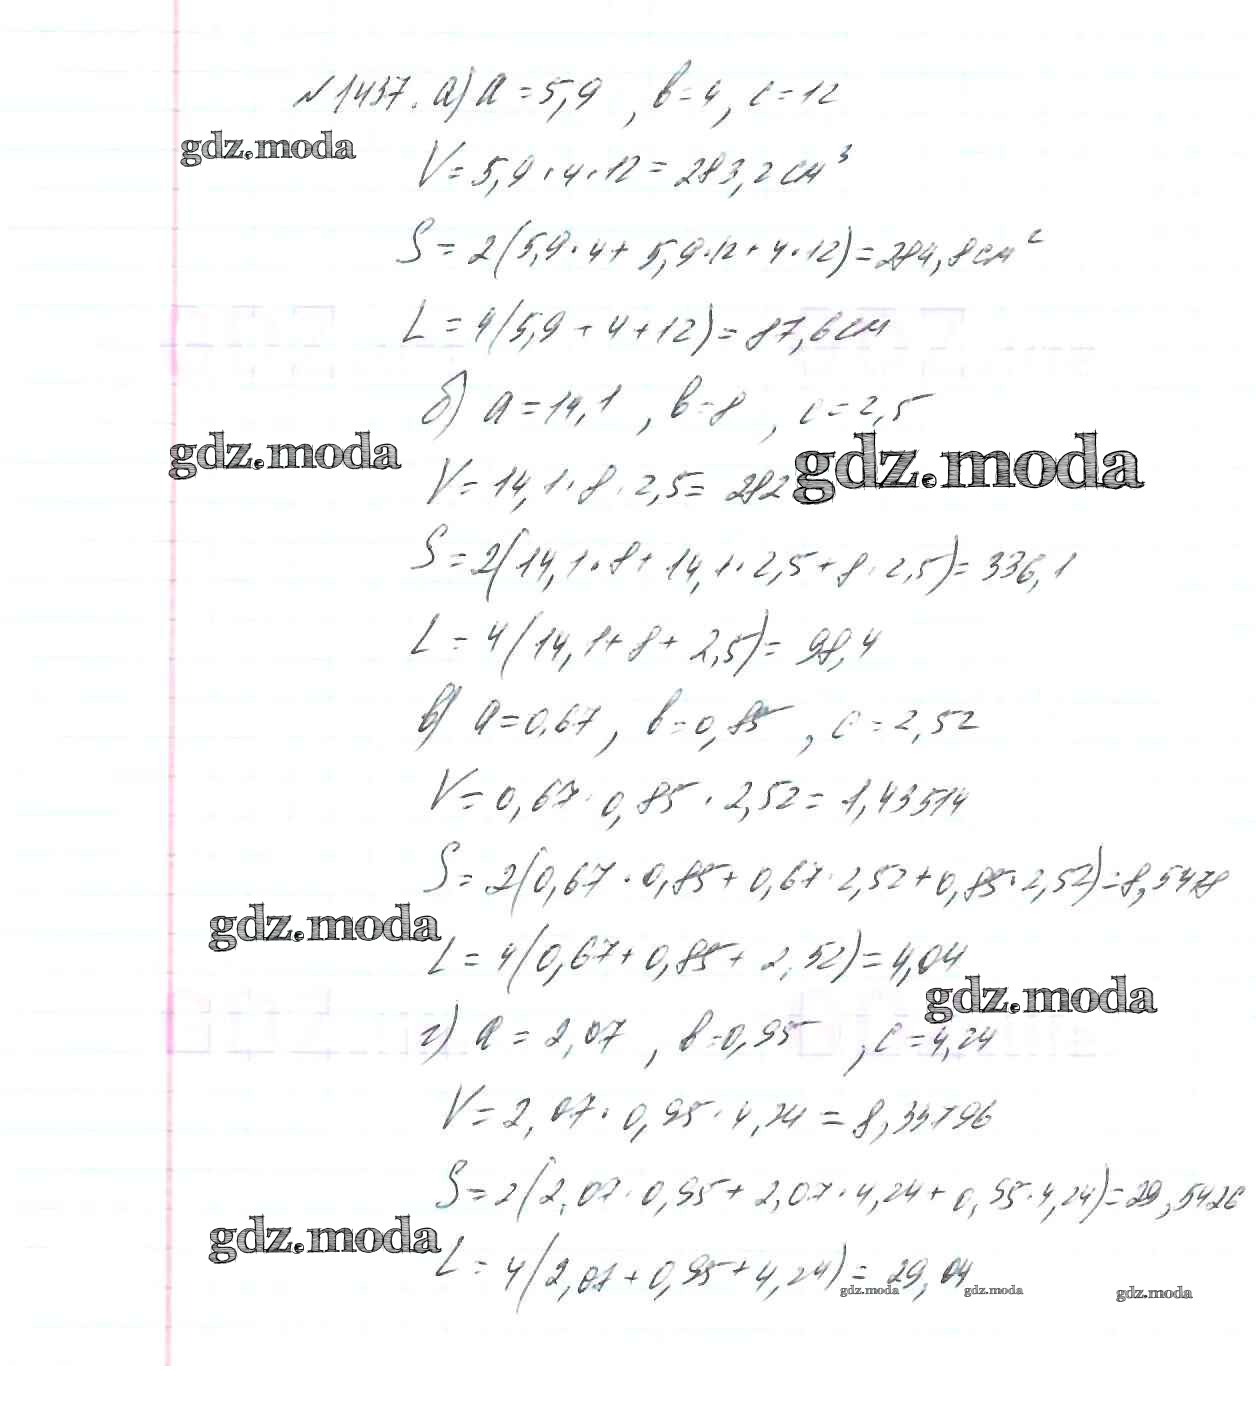 №1437. а) a = 5,9 , b = 4, c = 12
gdz.moda
V = 5,9 · 4 · 12 = 283,2 см³
S = 2(5,9 · 4 + 5,9 · 12 + 4 · 12) = 284,8 см²
L = 4(5,9 + 4 + 12) = 87,6 см
б) a = 14,1 , b = 8 , c = 2,5
gdz.moda
gdz.moda
V = 14,1 · 8 · 2,5 = 282
S = 2(14,1 · 8 + 14,1 · 2,5 + 8 · 2,5) = 336,1
L = 4(14,1 + 8 + 2,5) = 98,4
в) a = 0,67 , b = 0,85 , c = 2,52
V = 0,67 · 0,85 · 2,52 = 1,43514
S = 2(0,67 · 0,85 + 0,67 · 2,52 + 0,85 · 2,52) = 8,5478
gdz.moda
L = 4(0,67 + 0,85 + 2,52) = 4,04
gdz.moda
г) a = 2,07 , b = 0,95 , c = 4,24
V = 2,07 · 0,95 · 4,24 = 8,33796
S = 2(2,07 · 0,95 + 2,07 · 4,24 + 0,95 · 4,24) = 29,5426
gdz.moda
L = 4(2,07 + 0,95 + 4,24) = 29,04
gdz.moda
gdz.moda
gdz.moda